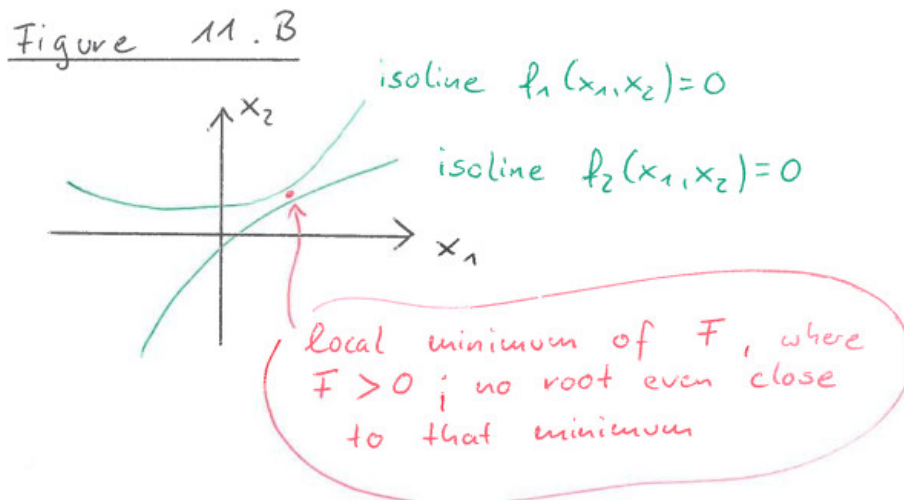 Figure 11.B
isoline f₁(x₁,x₂)=0
x₂
isoline f₂(x₁,x₂)=0
x₁
local minimum of F, where
F>0; no root even close
to that minimum